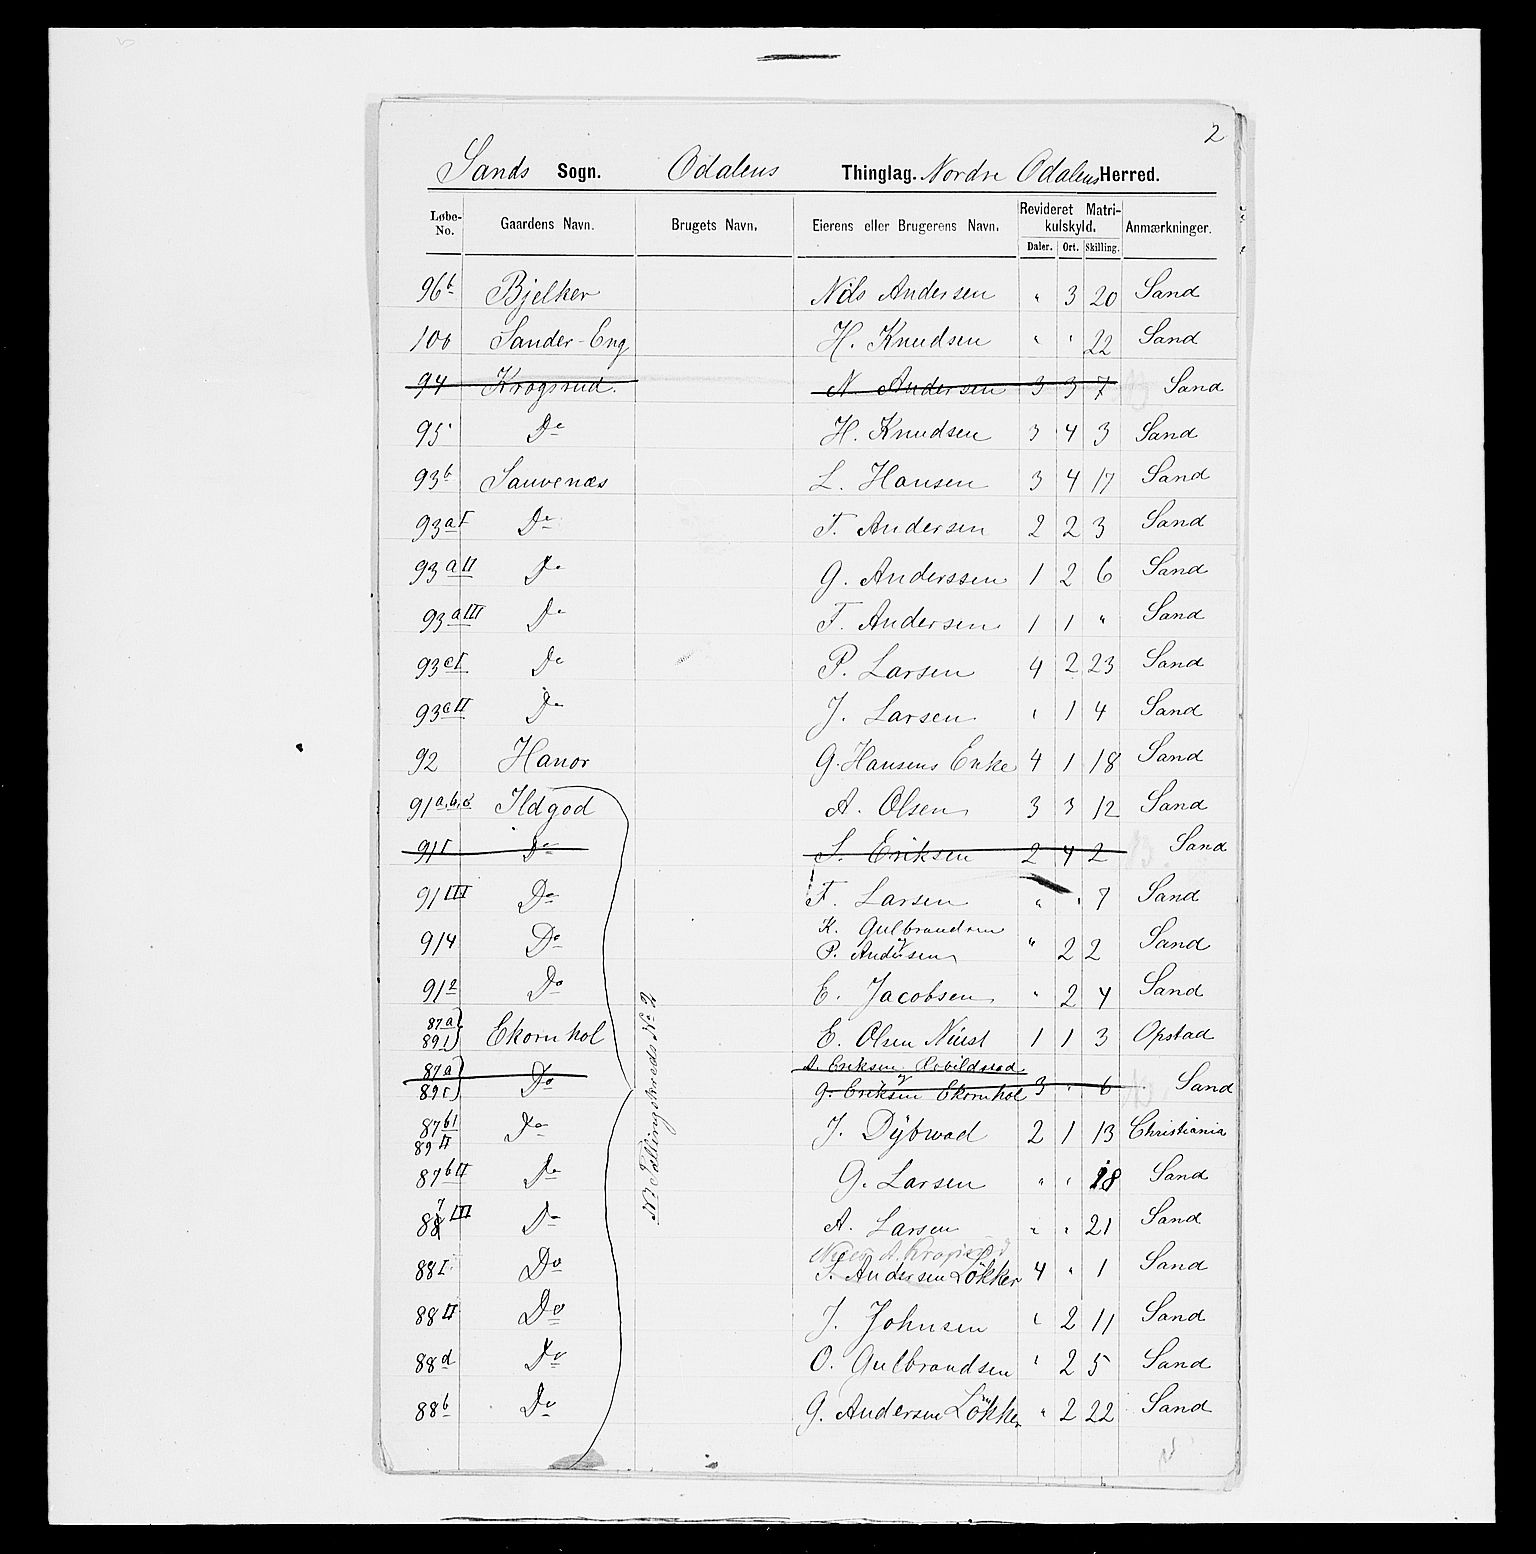 2
Sands Sogn. Odalens Thinglag. Nordre Odalens Herred.
Løbe-No. Gaardens Navn. Brugets Navn. Eierens eller Brugerens Navn. Revideret Matrikulskyld. Anmærkninger.
Daler. Ort. Skilling.
96b Bjelker Nils Andersen " 3 20 Sand
100 Sander-Eng H. Knudsen " " 22 Sand
94 Krogsrud. N. Andersen 3 3 7 Sand
95 Do H. Knudsen 3 4 3 Sand
93b Sauvenæs L. Hansen 3 4 17 Sand
93aI Do T. Andersen 2 2 3 Sand
93aII Do G. Anderssen 1 2 6 Sand
93aIII Do F. Andersen 1 1 " Sand
93cI Do P. Larsen 4 2 23 Sand
93cII Do J. Larsen " 1 4 Sand
92 Hanor G. Hansens Enke 4 1 18 Sand
91a,b,c Ildgod A. Olsen 3 3 12 Sand
91I Do S. Eriksen 2 4 2 Sand
91III Do F. Larsen " " 7 Sand
914 Do K. Gulbrandsen
og
P. Andersen " 2 2 Sand
912 Do E. Jacobsen " 2 4 Sand
87a
89I) Ekornhol E. Olsen 1 1 3 Opstad
87a
89c) Do A. Eriksen
og
G. Eriksen Ekornhol 3 " 6 Sand
87b1
89II Do J. Dybwad 2 1 13 Christiania
87bII Do G. Larsen " " 18 Sand
887III Do A. Larsen " " 21 Sand
88I Do T. Andersen Løkker 4 " 1 Sand
88II Do J. Johnsen " 2 11 Sand
88d Do O. Gulbrandsen " 2 5 Sand
88b Do G. Andersen Løkker " 2 22 Sand
Tællingskreds No 2